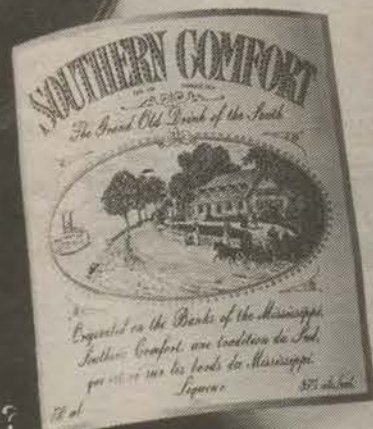 SOUTHERN COMFORT
The Grand Old Drink of the South
Originated on the Banks of the Mississippi,
Southern Comfort, une tradition du Sud,
qui est né sur les bords du Mississippi
Liqueur
750 ml